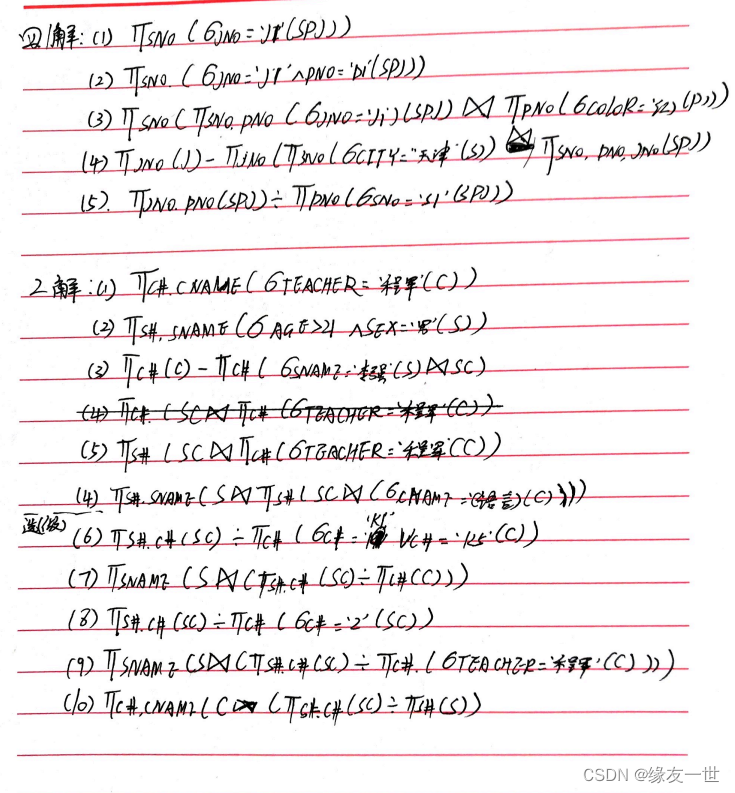 四、解:(1) πSNO(σJNO='J1'(SPJ))
(2) πSNO(σJNO='J1'∧PNO='P1'(SPJ))
(3) πSNO(πSNO.PNO(σJNO='J1')(SPJ)) ⋈ πPNO(σCOLOR='红)(P))
(4) πJNO(J)-πJNO(πSNO(σCITY='天津'(S)) ⋈ πSNO,PNO,JNO(SPJ))
(5). πJNO.PNO(SPJ))÷πPNO(σSNO='S1'(SPJ))
2解:(1) πC#.CNAME(σTEACHER='程军'(C))
(2) πS#.SNAME(σAGE>21 ∧SEX='男'(S))
(3) πC#(C)-πC#(σSNAME='李强'(S)⋈SC)
(4) πC#.(SC⋈πC#(σTEACHER='程军'(C))
(5) πS#(SC⋈πC#(σTEACHER='程军'(C))
(4) πS#.SNAME(S⋈πS#(SC⋈(σCNAME='C语言)(C))))
(6) πS#.C#(SC)÷πC#(σC#='K1'∨C#='K5'(C))
(7) πSNAME(S⋈(πS#.C#(SC)÷πC#(C)))
(8) πS#.C#(SC)÷πC#(σC#='2'(SC))
(9) πSNAME(S⋈(πS#.C#(SC)÷πC#.(σTEACHER='程军'(C))))
(10) πC#.CNAME(C⋈(πS#.C#(SC)÷πS#(S))
CSDN @缘友一世